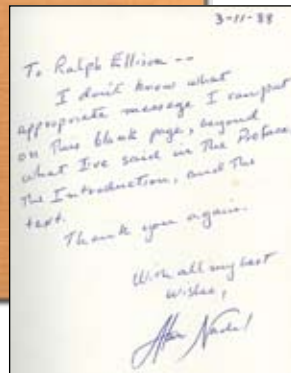 3-11-88
To Ralph Ellison --
I don't know what
appropriate message I can put
on this blank page, beyond
what I've said in the Preface,
the Introduction, and the
text.
Thank you again.
With all my best
wishes,
Alan Nadel